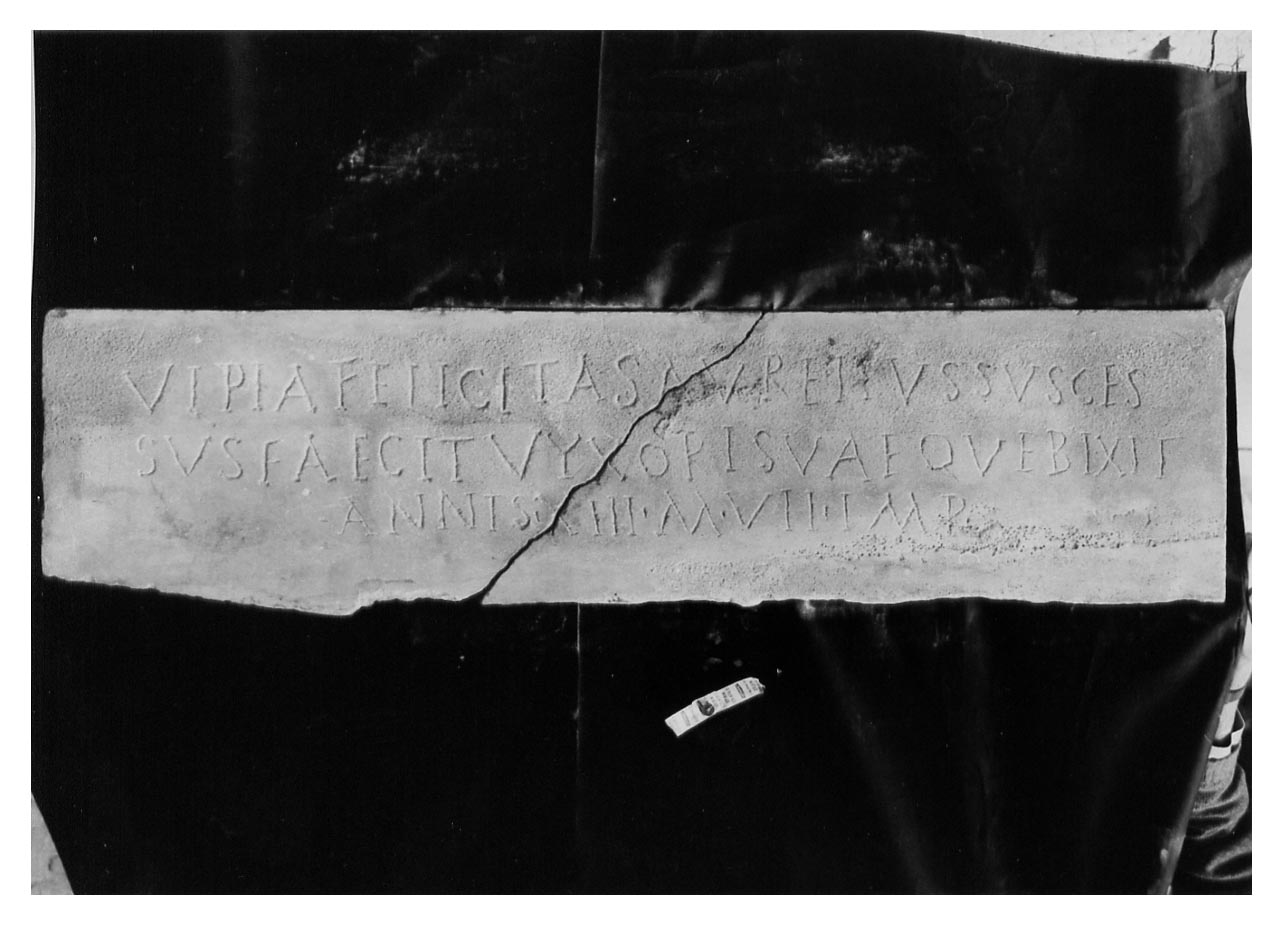 VIPIA FELICITAS AVRELIVS SVSCES
SVS FAECIT VYXORI SVAE QVE BIXIT
ANNIS XIIII · M · VII · IMP